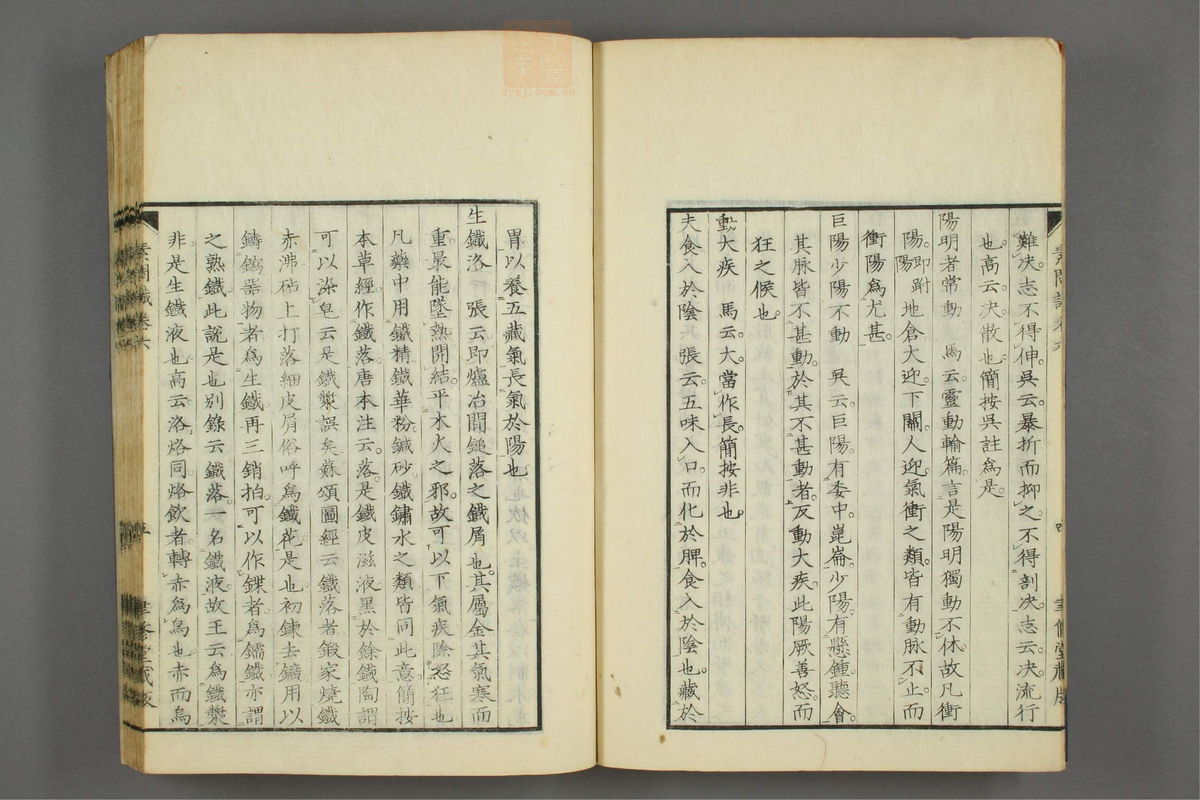 難決志不得伸吳云暴折而抑之不得剖決志云決流行
也高云決散也簡按吳註爲是
陽明者常動 馬云靈動輸篇言是陽明獨動不休故凡衝
陽即趺陽地倉大迎下關人迎氣衝之類皆有動脈不止而
衝陽爲尤甚
巨陽少陽不動 吳云巨陽有委中崑崙少陽有懸鍾聽會
其脈皆不甚動於其不甚動者反動大疾此陽厥善怒而
狂之候也
動大疾 馬云大當作長簡按非也
夫食入於陰 張云五味入口而化於脾食入於陰也藏於
胃以養五藏氣長氣於陽也
生鐵洛 張云即爐冶間鎚落之鐵屑也其屬金其氣寒而
重最能墜熱開結平木火之邪故可以下氣疾除怒狂也
凡藥中用鐵精鐵華粉鍼砂鐵鏽水之類皆同此意簡按
本草經作鐵落唐本注云落是鐵皮滋液黑於餘鐵陶謂
可以染皂云是鐵漿誤矣蘇頌圖經云鐵落者鍛家燒鐵
赤沸砧上打落細皮屑俗呼爲鐵花是也初鍊去鑛用以
鑄鎢器物者爲生鐵再三銷拍可以作鍱者爲鑐鐵亦謂
之熟鐵此說是也別錄云鐵落一名鐵液故王云爲鐵漿
非是生鐵液也高云洛烙同烙飲者轉赤爲烏也赤而烏
素問識卷六
五
聿修堂藏版